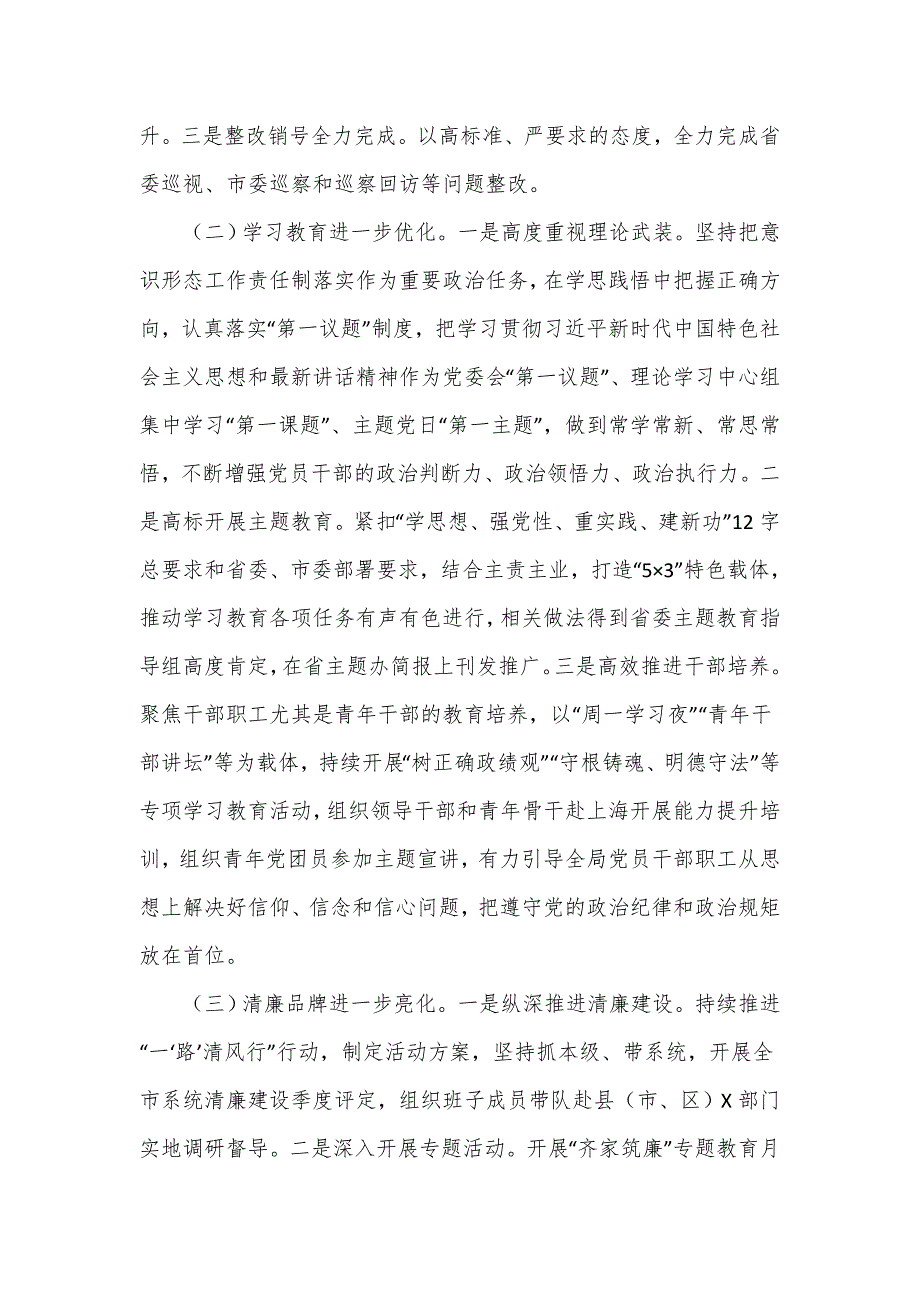 升。三是整改销号全力完成。以高标准、严要求的态度，全力完成省
委巡视、市委巡察和巡察回访等问题整改。
（二）学习教育进一步优化。一是高度重视理论武装。坚持把意
识形态工作责任制落实作为重要政治任务，在学思践悟中把握正确方
向，认真落实“第一议题”制度，把学习贯彻习近平新时代中国特色社
会主义思想和最新讲话精神作为党委会“第一议题”、理论学习中心组
集中学习“第一课题”、主题党日“第一主题”，做到常学常新、常思常
悟，不断增强党员干部的政治判断力、政治领悟力、政治执行力。二
是高标开展主题教育。紧扣“学思想、强党性、重实践、建新功”12 字
总要求和省委、市委部署要求，结合主责主业，打造“5×3”特色载体，
推动学习教育各项任务有声有色进行，相关做法得到省委主题教育指
导组高度肯定，在省主题办简报上刊发推广。三是高效推进干部培养。
聚焦干部职工尤其是青年干部的教育培养，以“周一学习夜”“青年干
部讲坛”等为载体，持续开展“树正确政绩观”“守根铸魂、明德守法”等
专项学习教育活动，组织领导干部和青年骨干赴上海开展能力提升培
训，组织青年党团员参加主题宣讲，有力引导全局党员干部职工从思
想上解决好信仰、信念和信心问题，把遵守党的政治纪律和政治规矩
放在首位。
（三）清廉品牌进一步亮化。一是纵深推进清廉建设。持续推进
“一‘路’清风行”行动，制定活动方案，坚持抓本级、带系统，开展全
市系统清廉建设季度评定，组织班子成员带队赴县（市、区）X 部门
实地调研督导。二是深入开展专题活动。开展“齐家筑廉”专题教育月